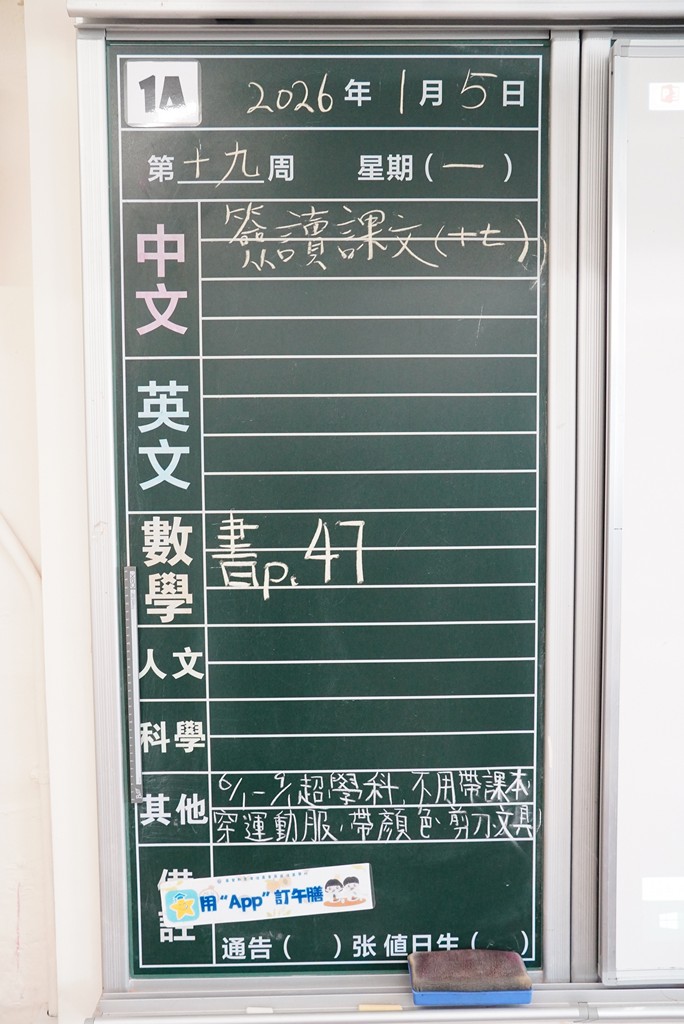 1A
2026年1月5日
第十九周 星期(一)
中文 簽讀課文(十七)
英文
數學 書p.47
人文
科學
其他 6/1-9/1超學科,不用帶課本
穿運動服,帶顏色、剪刀文具
備註
用“App”訂午膳
通告( )张 值日生( )